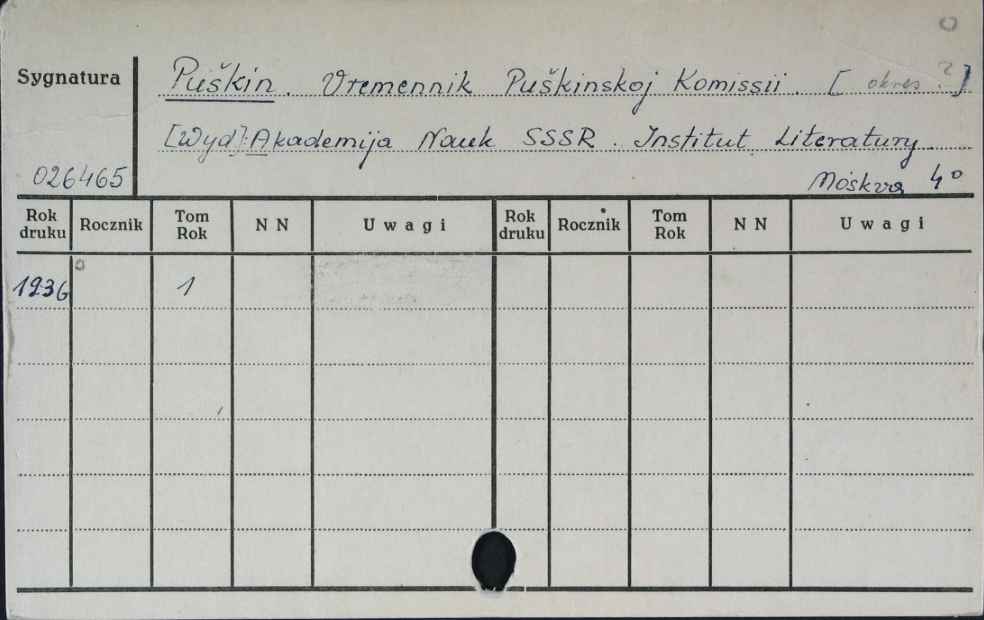 Sygnatura
Puškin. Vremennik Puškinskoj Komissii. [okres ?]
[Wyd]: Akademija Nauk SSSR. Institut Literatury
026465
Moskva 4°
Rok druku Rocznik Tom Rok N N Uwagi Rok druku Rocznik Tom Rok N N Uwagi
1936 1